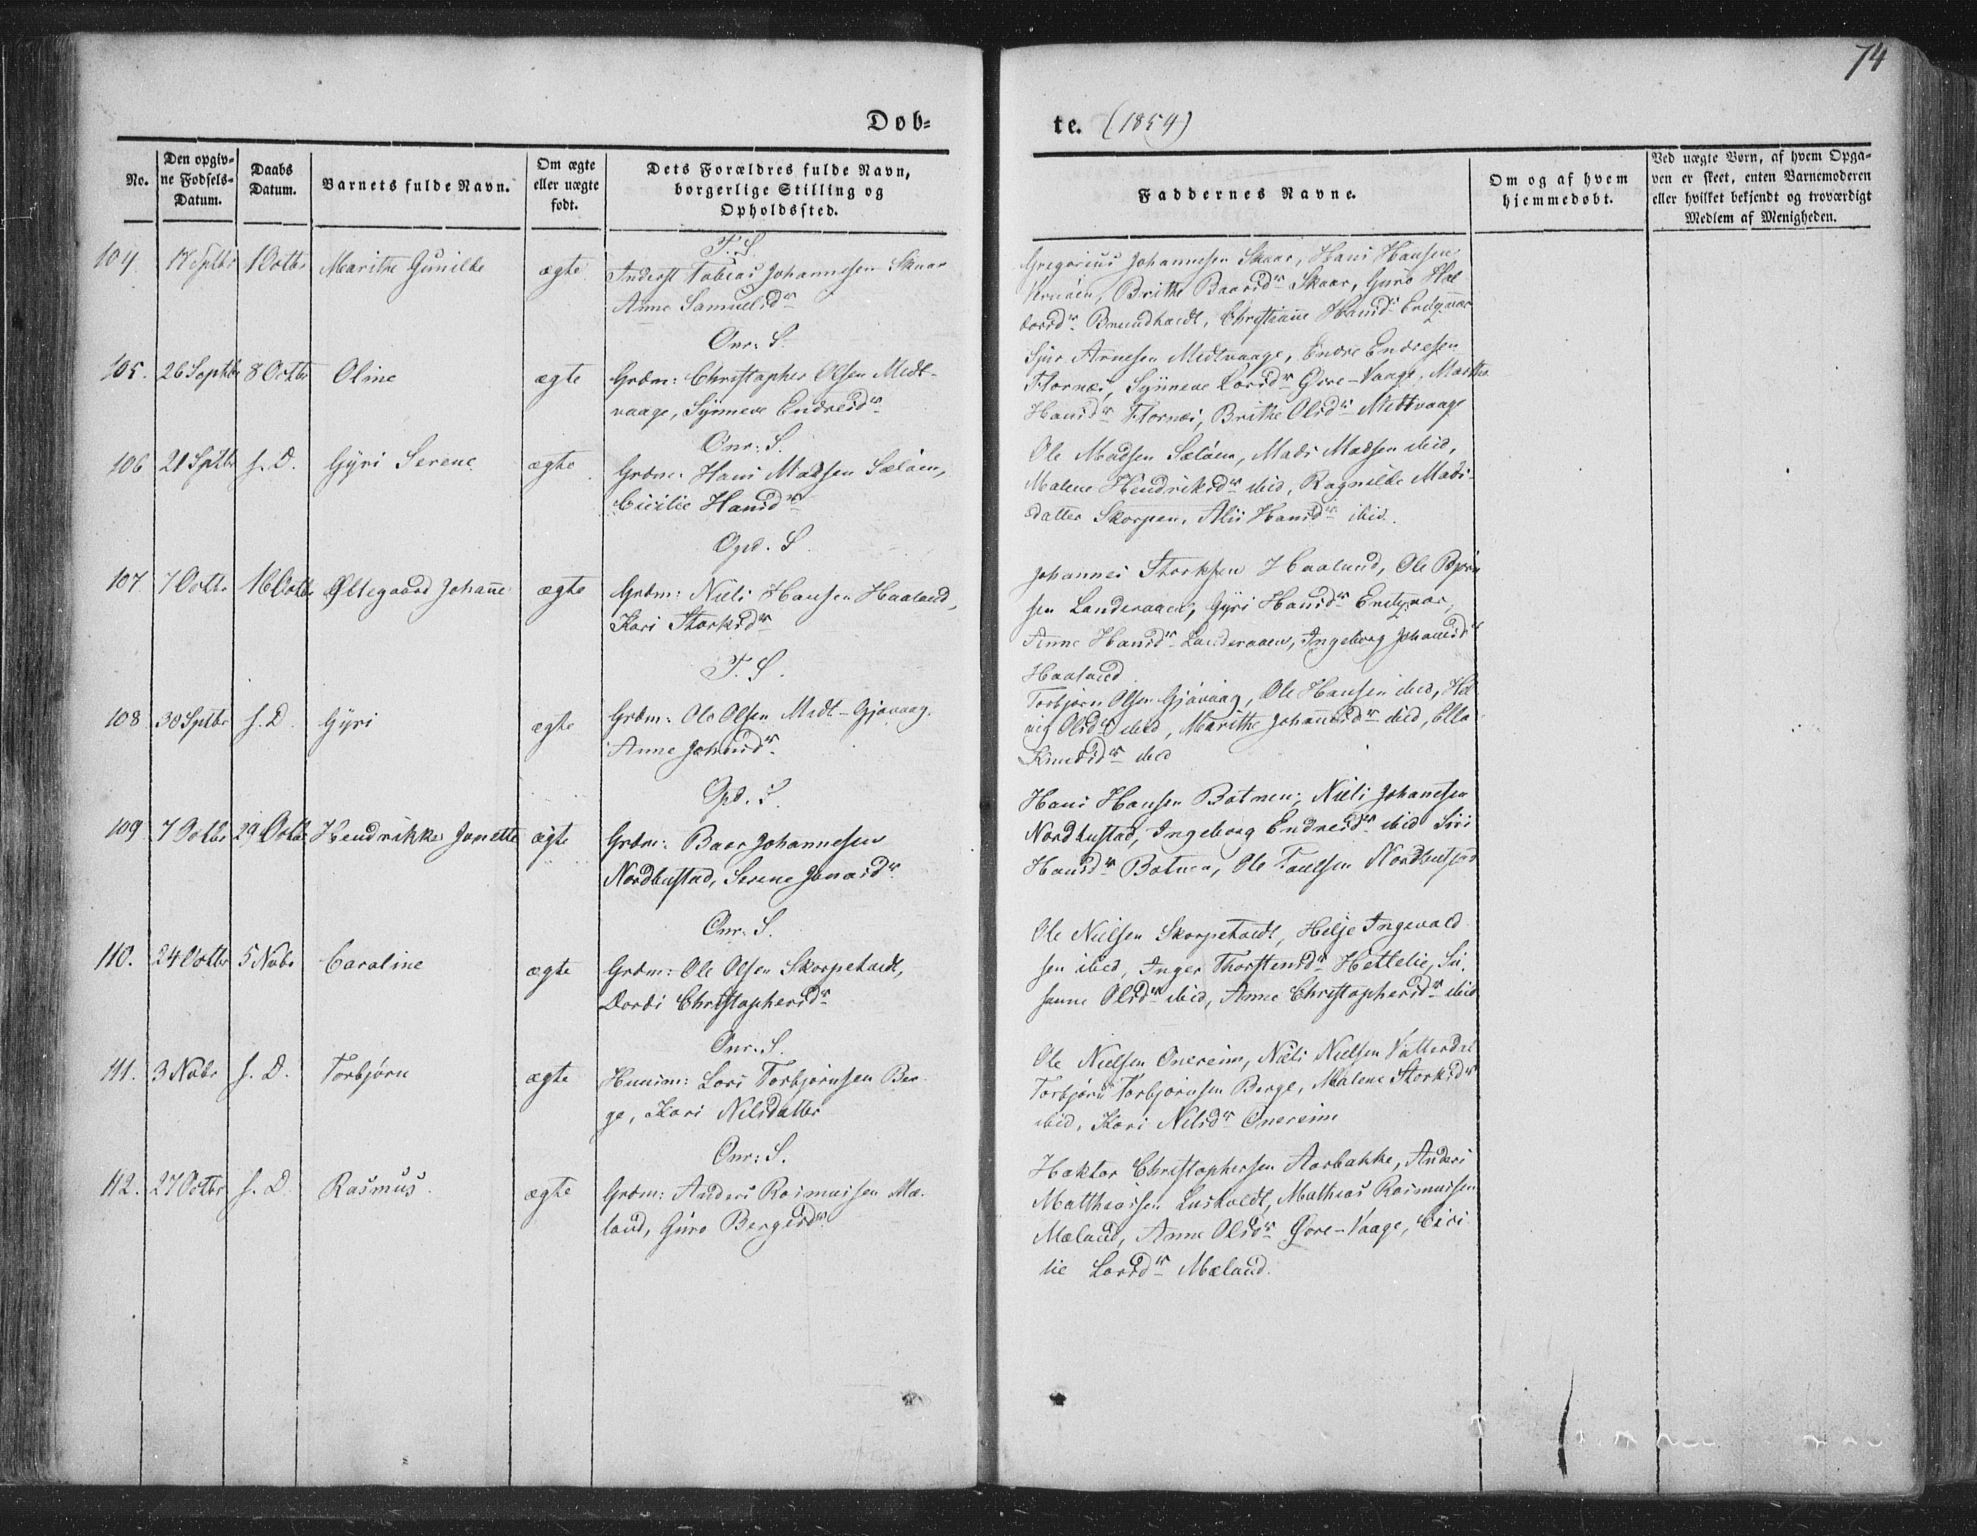 74
Døb=
te. (1854)
No.
Den opgiv=
ne Fødsels=
Datum.
Daabs
Datum.
Barnets fulde Navn.
Om ægte
eller uægte
født.
Dets Forældres fulde Navn,
borgerlige Stilling og
Opholdssted.
Faddernes Navne.
Om og af hvem
hjemmedøbt.
Ved uægte Børn, af hvem Opga=
ven er skeet, enten Barnemoderen
eller hvilket bekjendt og troværdigt
Medlem af Menigheden.
T. S.
104. 17 Septbr 1 Octbr Marithe Gunilde ægte Tobias Johannesen Skaar
Anne Samuelsdr
Gregorius Johannesen Skaar, Hans Hansen
Brithe Baarsdr Skaar, Guro Hal
dorsdr Christiane Hansdr
Onr. S.
105. 26 Septbr 8 Octbr Oline ægte Grdm: Christopher Olsen Midt-
vaage, Synneve Endresdr
Sjur Arnesen Midtvaage, Endre Endresen
Synneve Larsdr Øvre-Vaage, Marthe
Hansdr Brithe Olsdr Midtvaage
Onr: S.
106 21 Sptbr s. D. Gyri Serene ægte Grdm: Hans Madsen Sælöen,
Cicilie Hansdr
Ole Madsen Sælöen, Mads Madsen ibid,
Malene Hendriksdr ibid, Ragnilde Mads-
datter Skorpen, Hansdr ibid.
Opd. S.
107 7 Octbr 16 Octbr Øllegaard Johanne ægte Grdm: Niels Hansen Haaland,
Kari Storksdr
Johannes Storksen Haaland, Ole Bjørn
sen Landeraaen, Gyri Hansdr
Anne Hansdr Landeraaen, Ingeborg Johansdr
Haaland.
T. S.
108 30 Sptbr s. D. Gyri ægte Grdm: Ole Olsen Midt-Gjøvaag.
Anne Johansdr
Torbjørn Olsen Gjøvaag, Ole Hansen ibid, Hel
vig Olsdr ibid, Marithe Johannesdr ibid, Ella
Knudsdr ibid
Opd. S.
109 7 Octbr 29 Octbr Hendrikke Janette ægte Grdm: Baar Johannesen
Nordbustad, Serene Jonasdr
Hans Hansen Botnen, Niels Johannesen
Nordbustad, Ingeborg Endresdr ibid Siri
Hansdr Botnen, Ole Nordbustad
Onr. S.
110. 24 Octbr 5 Nvbr Caroline ægte Grdm: Ole Olsen Skorpeholdt,
Dordi Christophersdr
Ole Nielsen Skorpeholdt, Helje Ingevald
sen ibid, Inger Thorstensdr Hettelie, Su-
sanne Olsdr ibid, Anne Christophersdr ibid
Onr. S.
111. 3 Nvbr s. D. Torbjørn ægte Husm: Lars Torbjørnsen Ber-
ge, Kari Nilsdatter
Ole Nielsen Onereim, Niels Nielsen Vatterdal
Torbjørn Torbjørnsen Berge, Malene Storksdr
ibid, Kari Nilsdr Onereim
Onr: S.
112. 27 Octbr s. D. Rasmus ægte Grdm: Anders Rasmussen Mæ-
land, Guro Bergesdr
Haktor Christophersen Aarbakke, Anders
Matthiassen Mathias Rasmussen
Mæland, Anne Olsdr Øvre-Vaage, Cici
lie Larsdr Mæland.